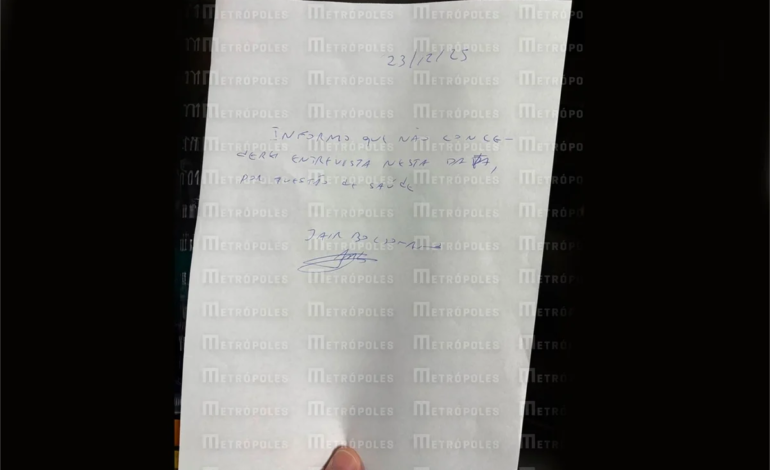 23/12/25
INFORMO QUE NÃO CONCE-
DEREI ENTREVISTA NESTA DATA,
POR QUESTÃO DE SAÚDE
JAIR BOLSONARO
METRÓPOLES